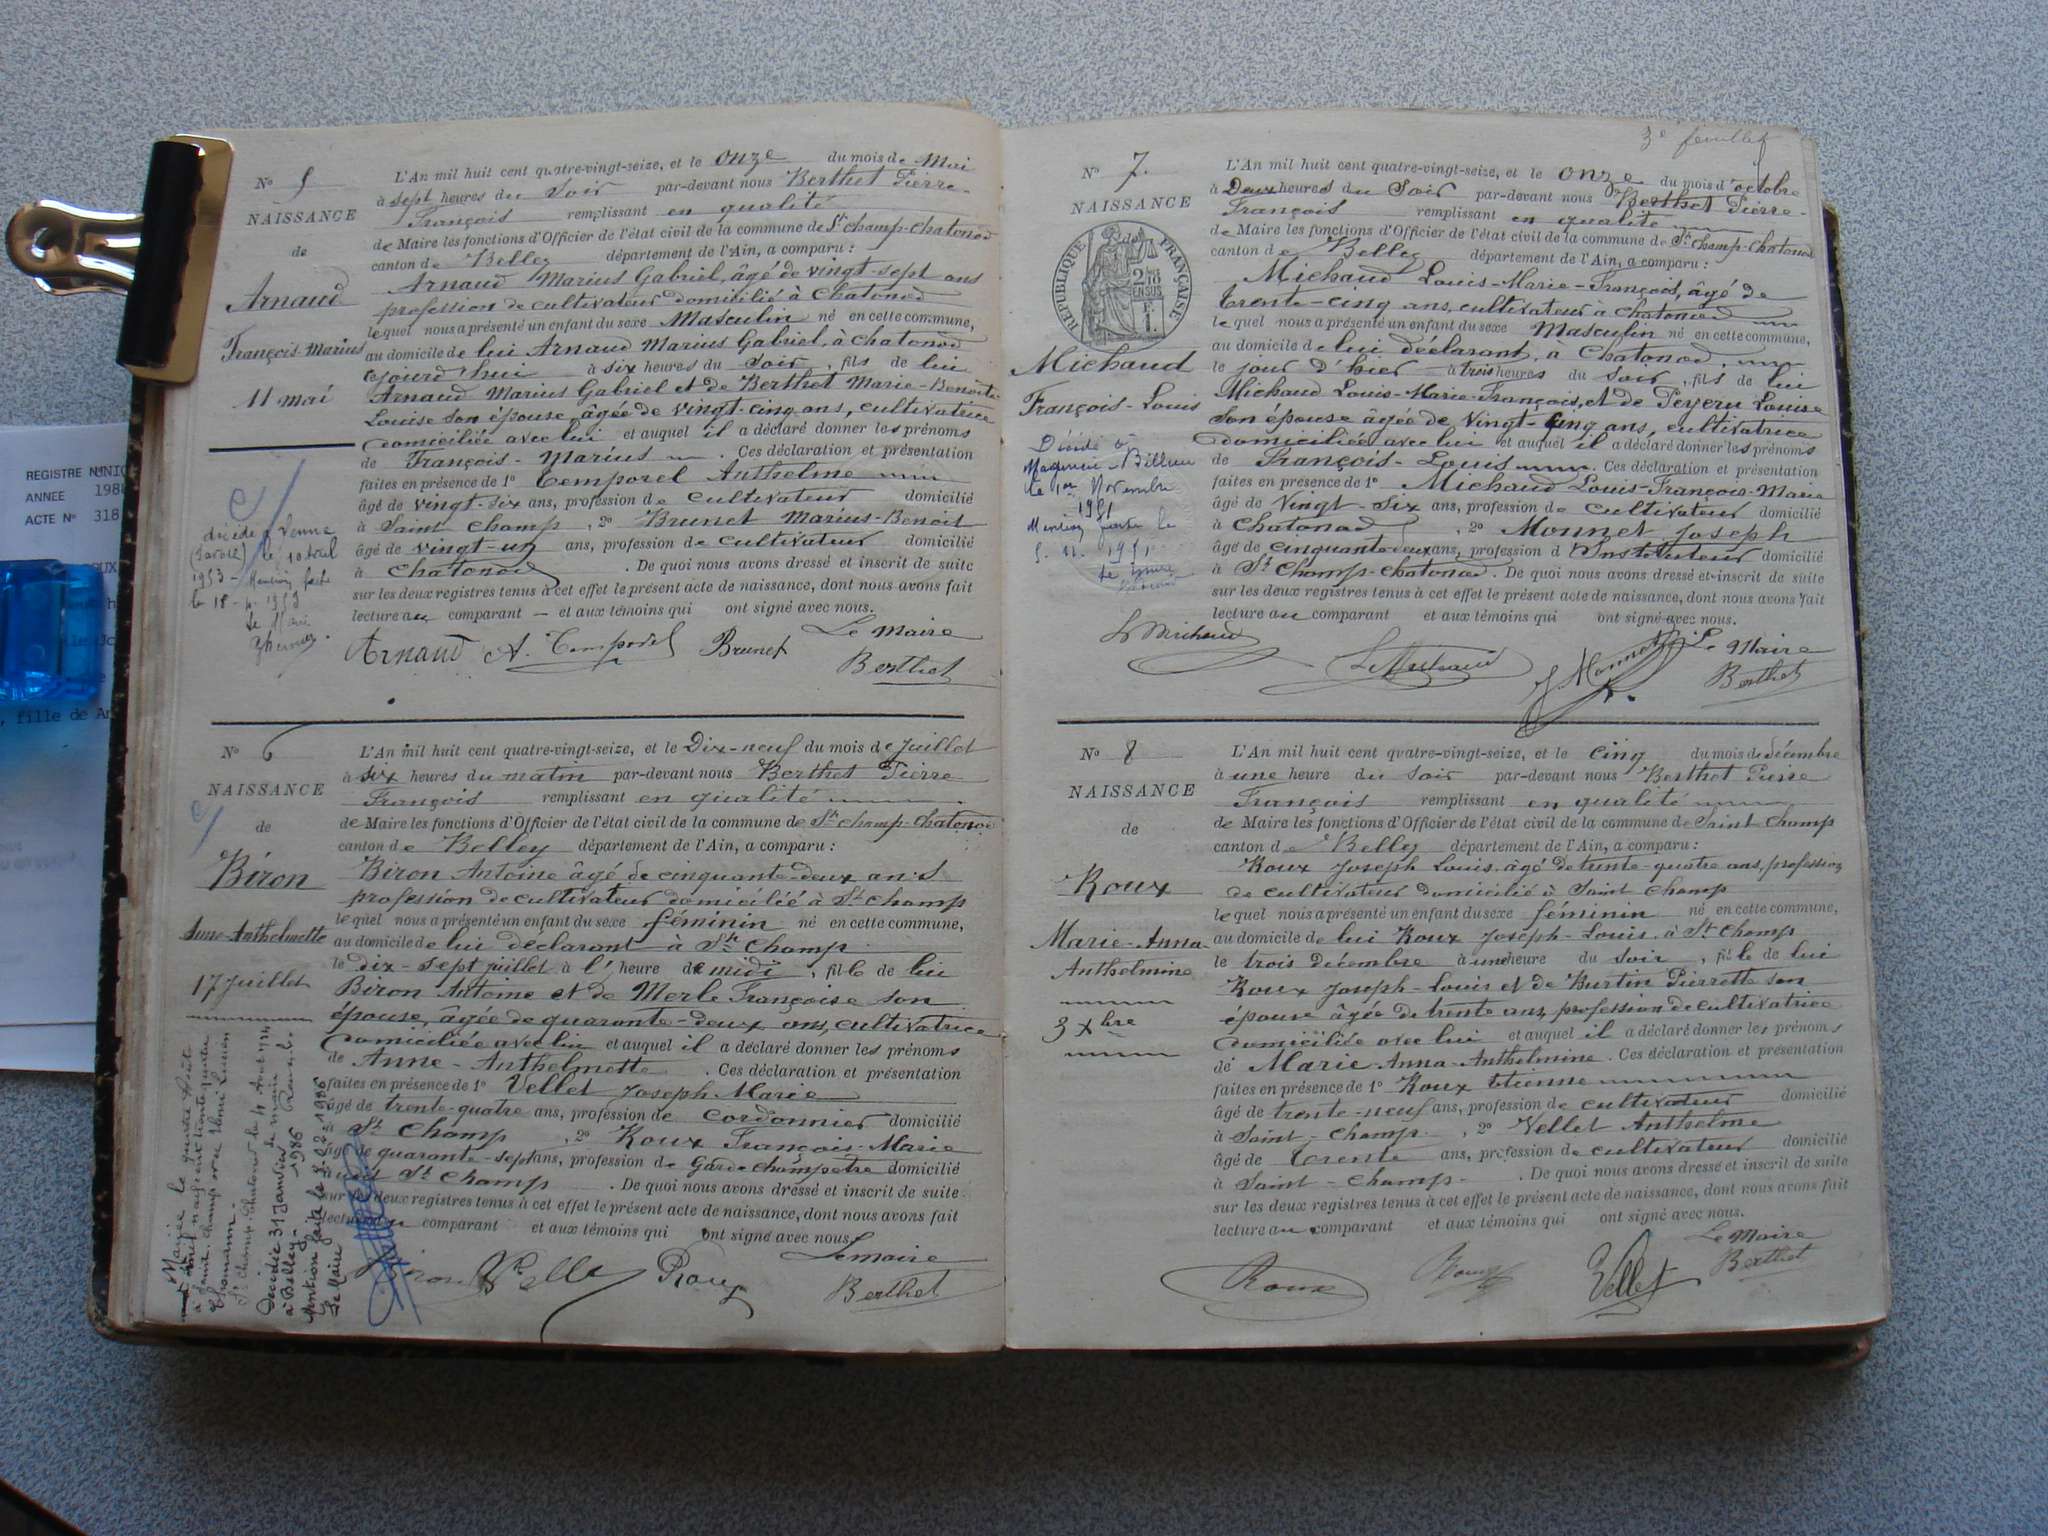 REGISTRE
ANNEE 198
ACTE Nº 318
, fille de
Nº 5
NAISSANCE
de
Arnaud
François-Marius
11 mai
décédé à Yenne
(Savoie) le 10 avril
1953 - Mention faite
le 18-4-1953
Le Maire
L'An mil huit cent quatre-vingt-seize, et le onze du mois de Mai
à sept heures du Soir par-devant nous Berthet Pierre-
François remplissant en qualité
de Maire les fonctions d'Officier de l'état civil de la commune de St Champ-Chatonod
canton de Belley département de l'Ain, a comparu :
Arnaud Marius Gabriel, âgé de vingt-sept ans
profession de cultivateur domicilié à Chatonod
lequel nous a présenté un enfant du sexe Masculin né en cette commune,
au domicile de lui Arnaud Marius Gabriel, à Chatonod
cejourd'hui à six heures du Soir, fils de lui
Arnaud Marius Gabriel et de Berthet Marie-Benoîte
Louise son épouse, âgée de vingt-cinq ans, cultivatrice
domiciliée avec lui et auquel il a déclaré donner les prénoms
de François-Marius. Ces déclaration et présentation
faites en présence de 1º Temporel Anthelme
âgé de vingt-six ans, profession de cultivateur domicilié
à Saint Champ, 2º Brunet Marius-Benoit
âgé de vingt-un ans, profession de cultivateur domicilié
à Chatonod. De quoi nous avons dressé et inscrit de suite
sur les deux registres tenus à cet effet le présent acte de naissance, dont nous avons fait
lecture au comparant - et aux témoins qui ont signé avec nous.
Arnaud A. Temporel Brunet Le Maire
Berthet
Nº 6
NAISSANCE
de
Biron
Anne-Anthelmette
17 Juillet
Mariée le quatre Août
mil neuf cent trente quatre
à Saint Champ avec
Thomann.
St Champ-Chatonod le 4 Août 1934
Décédée 31 Janvier
à Belley - 1986
Mention faite le 3-02-1986
Le Maire
L'An mil huit cent quatre-vingt-seize, et le Dix-neuf du mois de Juillet
à six heures du matin par-devant nous Berthet Pierre
François remplissant en qualité
de Maire les fonctions d'Officier de l'état civil de la commune de St Champ-Chatonod
canton de Belley département de l'Ain, a comparu :
Biron Antoine âgé de cinquante-deux ans
profession de cultivateur domicilié à St Champ
lequel nous a présenté un enfant du sexe féminin né en cette commune,
au domicile de lui déclarant à St Champ
le dix-sept juillet à l' heure de midi, fille de lui
Biron Antoine et de Merle Françoise son
épouse, âgée de quarante-deux ans, cultivatrice
domiciliée avec lui et auquel il a déclaré donner les prénoms
de Anne-Anthelmette. Ces déclaration et présentation
faites en présence de 1º Vellet Joseph Marie
âgé de trente-quatre ans, profession de cordonnier domicilié
St Champ, 2º Roux François-Marie
âgé de quarante-sept ans, profession de Garde Champêtre domicilié
St Champ. De quoi nous avons dressé et inscrit de suite
sur les deux registres tenus à cet effet le présent acte de naissance, dont nous avons fait
lecture au comparant et aux témoins qui ont signé avec nous.
Biron Vellet Roux Lemaire
Berthet
3e feuillet
Nº 7.
NAISSANCE
de
RÉPUBLIQUE FRANÇAISE
Michaud
François-Louis
Décédé à
le 1er Novembre
1951
Mention faite le
5. 11. 1951
Le Maire
L'An mil huit cent quatre-vingt-seize, et le onze du mois d'octobre
à Deux heures du Soir par-devant nous Berthet Pierre-
François remplissant en qualité
de Maire les fonctions d'Officier de l'état civil de la commune de St Champ-Chatonod
canton de Belley département de l'Ain, a comparu :
Michaud Louis-Marie-François, âgé de
trente-cinq ans, cultivateur à Chatonod
lequel nous a présenté un enfant du sexe Masculin né en cette commune,
au domicile de lui déclarant, à Chatonod,
le jour d'hier à trois heures du Soir, fils de lui
Michaud Louis-Marie-François, et de Peyeru Louise
son épouse âgée de Vingt-Cinq ans, cultivatrice
domiciliée avec lui et auquel il a déclaré donner les prénoms
de François-Louis. Ces déclaration et présentation
faites en présence de 1º Michaud Louis-François-Marie
âgé de Vingt-six ans, profession de cultivateur domicilié
à Chatonod, 2º Monnet Joseph
âgé de cinquante-deux ans, profession d'Instituteur domicilié
à St Champ-Chatonod. De quoi nous avons dressé et inscrit de suite
sur les deux registres tenus à cet effet le présent acte de naissance, dont nous avons fait
lecture au comparant et aux témoins qui ont signé avec nous.
L Michaud L Michaud J Monnet Le Maire
Berthet
Nº 8
NAISSANCE
de
Roux
Marie-Anna-
Anthelmine
3 Xbre
L'An mil huit cent quatre-vingt-seize, et le cinq du mois de décembre
à une heure du Soir par-devant nous Berthet Pierre
François remplissant en qualité
de Maire les fonctions d'Officier de l'état civil de la commune de Saint Champ
canton de Belley département de l'Ain, a comparu :
Roux Joseph Louis âgé de trente-quatre ans, profession
de cultivateur domicilié à Saint Champ
lequel nous a présenté un enfant du sexe féminin né en cette commune,
au domicile de lui Roux Joseph-Louis à St Champ
le trois décembre à une heure du soir, fille de lui
Roux Joseph-Louis et de Burtin Pierrette son
épouse âgée de trente ans, profession de cultivatrice
domiciliée avec lui et auquel il a déclaré donner les prénoms
de Marie-Anna-Anthelmine. Ces déclaration et présentation
faites en présence de 1º Roux Etienne
âgé de trente-neuf ans, profession de cultivateur domicilié
à Saint-Champ, 2º Vellet Anthelme
âgé de trente ans, profession de cultivateur domicilié
à Saint-Champ. De quoi nous avons dressé et inscrit de suite
sur les deux registres tenus à cet effet le présent acte de naissance, dont nous avons fait
lecture au comparant et aux témoins qui ont signé avec nous.
Roux Roux Vellet Le Maire
Berthet